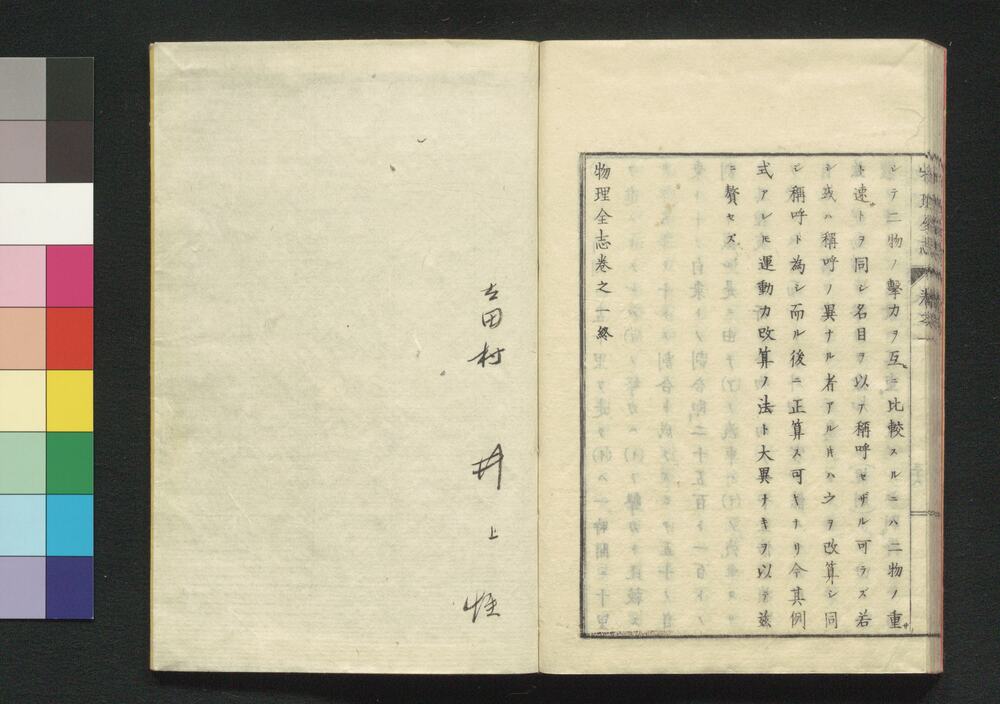 シテ二物ノ撃力ヲ互ニ比較スルニハ二物ノ重サ
ト速トヲ同シ名目ヲ以テ稱呼セザル可ラズ若
シ或ハ稱呼ノ異ナル者アル𪜈ハ之ヲ改算シ同
シ稱呼ト為シ而ル後ニ正算ス可キナリ今其例
式アレ𪜈運動力改算ノ法ト大異ナキヲ以テ茲
ニ贅セズ
物理全志巻之一終
吉田村
井上